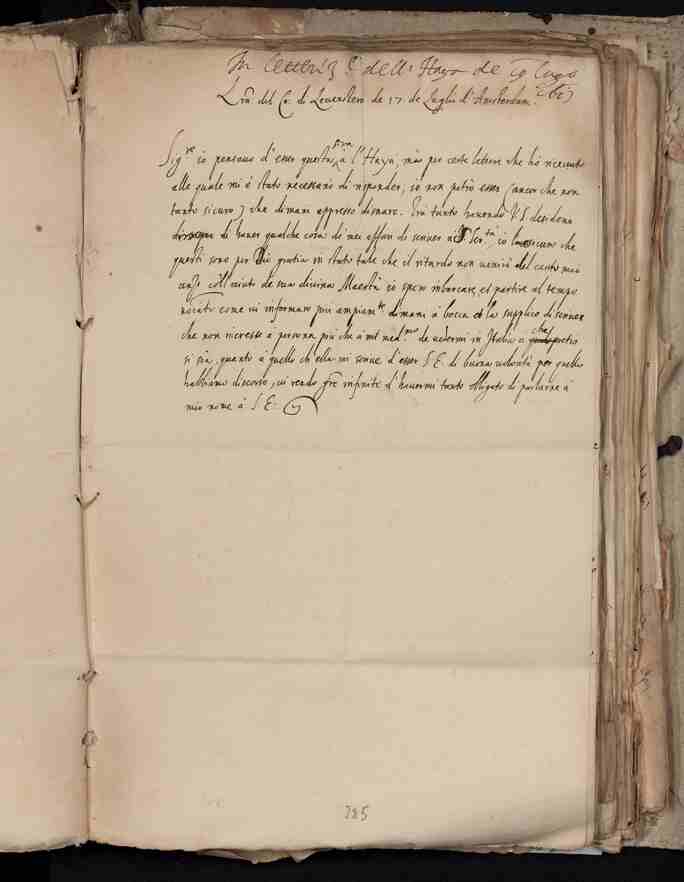 In lettera 3ª dell' Haya de 19 lugo
1617
Lrã del Co: di Leuenstein de 17 de Luglio d'Amsterdam.
Sigre io pensauo d'esser questa sera a l'Haya, mà per certe lettere che hò riceuuto
alle quale mi è stato necessario di risponder, io non potrò esser (ancor che non
tanto sicuro) che dimani appresso disnare. Frà tanto hauendo V.S. desiderio
di hauer qualche cosa di mei affari di scriuer à S. Sertà, io l'assicuro che
questi sono per Dio gratia in stato tale che il ritardo non uenirà del canto mio
anzi coll'aiuto de sua diuina Maestà io spero imbarcare, et partire al tempo
notato come mi informarò più ampiamte dimani à bocca et la supplico di scriuer
che non ricresse à persona più che à me medmo de uedermi in Italia
si sia, quanto à quello ch'ella mi scriue d'esser S.E. di buona uolontà per quello
habbiamo discorso, ui rendo gre infinite d'hauermi tanto obligato di parlarne à
mio nome à S.E.
285